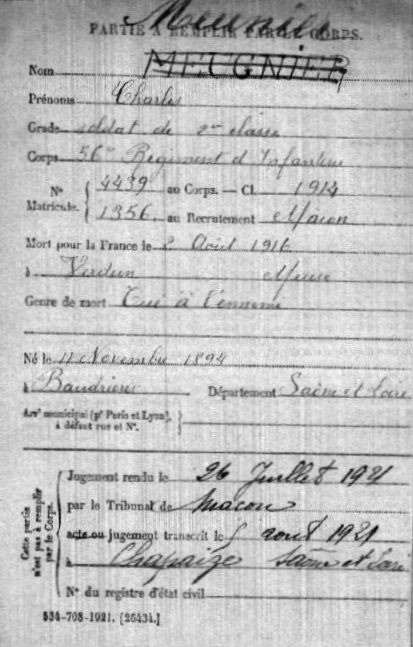 Meunier
PARTIE À REMPLIR PAR LE CORPS.
Nom MEUGNIER
Prénoms Charles
Grade soldat de 2me classe
Corps 56e Régiment d'Infanterie
N° Matricule. { 4439 au Corps. — Cl. 1914
1356 au Recrutement Macon
Mort pour la France le 2 Août 1916
à Verdun Meuse
Genre de mort Tué à l'ennemi
Né le 11 Novembre 1894
à Baudrières Département Saône et Loire
Arrt municipal (pr Paris et Lyon), à défaut rue et N°.
Cette partie n'est pas à remplir par le Corps.
Jugement rendu le 26 Juillet 1921
par le Tribunal de Macon
acte ou jugement transcrit le 5 août 1921
à Chapaize Saône et Loire
N° du registre d'état civil
534-708-1921. [26434.]